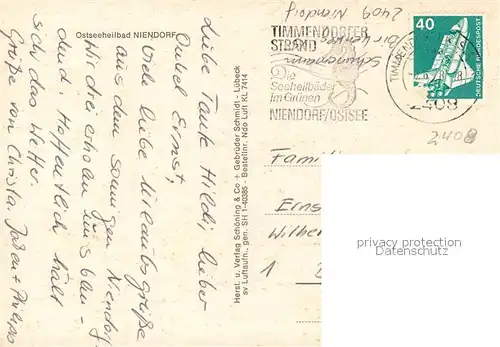 Ostseeheilbad NIENDORF
Liebe Tante Hildi, lieber
Onkel Ernst,
viele liebe Urlaubsgrüße
aus dem sonnigen Niendorf.
Wir drei erholen uns blen-
dend. Hoffentlich hält
sich das Wetter.
Grüße von Christa, Jochen + Philipp
Herst. u. Verlag Schöning & Co + Gebrüder Schmidt · Lübeck
sv Luftaufn., gen. SH 1-40385 - Bestellnr. Ndo Luft KL 7414
2409 Niendorf
TIMMENDORFER
STRAND
Die
Seeheilbäder
im Grünen
NIENDORF/OSTSEE
40
DEUTSCHE BUNDESPOST
TIMMEND
2408
2408
Famili
Erns
Wilhel
1
privacy protection
Datenschutz